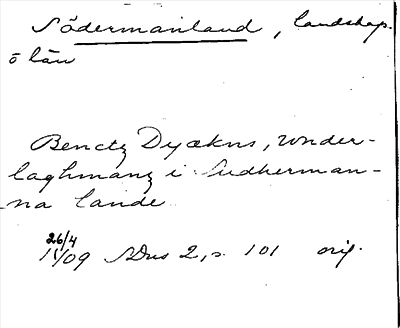 Södermanland, landskap.
o län
Benctz Dyækns, wnder-
laghmanz i Sudherman-
na lande
26/4
1409 SDns 2, s. 101 orig.